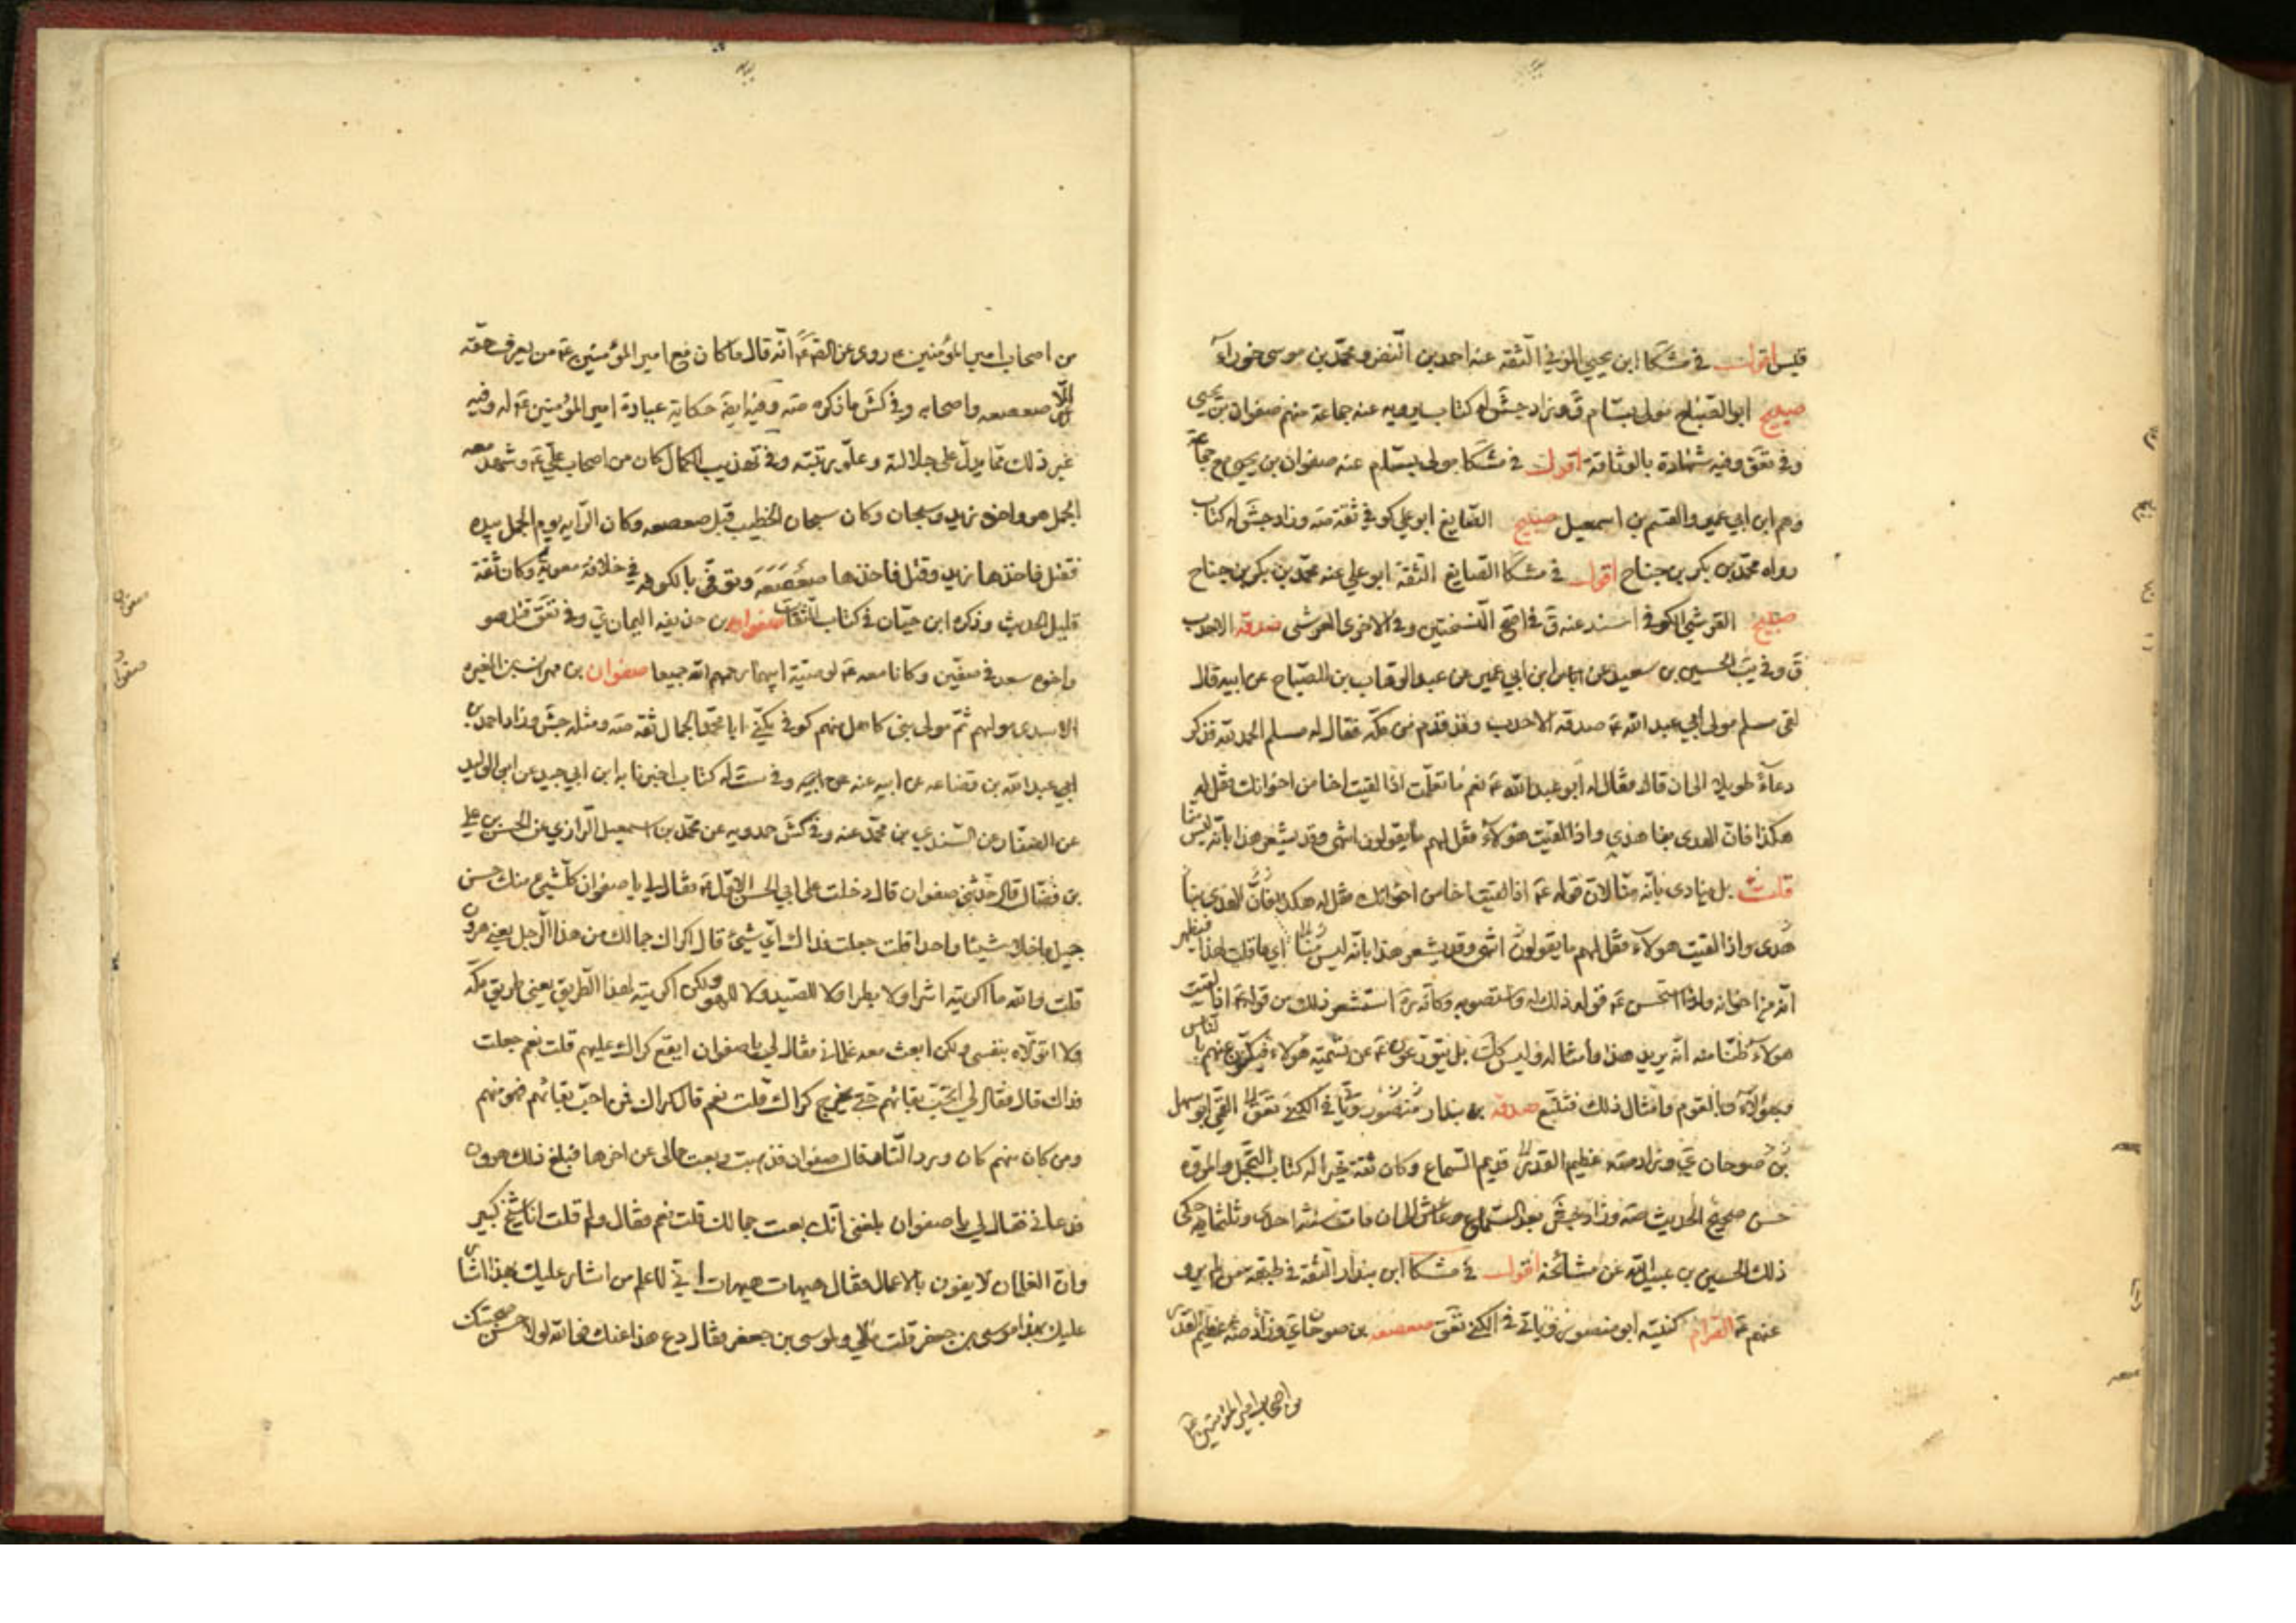 قيس اقول في مشكا ابن يحيى المزني الثقة عنه احمد بن النضر ومحمد بن موسى خوراء
صبيح ابو الصباح مولى بسام ق وزاد جش له كتاب يرويه عنه جماعة منهم صفوان بن يحيى
وفي تعق وفيه شهادة بالوثاقة اقول في مشكا مولى بسام عنه صفوان بن يحيى مع جماعة
وهم ابن ابي عمير والقسم بن اسمعيل صبيح الصايغ ابو علي كوفي ثقة صه وزاد جش له كتاب
رواه محمد بن بكر بن جناح اقول في مشكا الصايغ الثقة ابو علي عنه محمد بن بكر بن جناح
صبيح القرشي الكوفي اسند عنه ق في اصح النسختين وفي الاخرى العرشي صدقة الاحدب
ق وفي يب الحسين بن سعيد عن ابن ابي عمير عن عبد الوهاب بن الصباح عن ابيه قال
لقى مسلم مولى ابي عبد الله عه صدقة الاحدب وقد قدم من مكة فقال له مسلم الحمد لله فذكر
دعاء طويلا الى ان قال فقال له ابو عبد الله عه نعم ما تعلمت اذا لقيت اخا من اخوانك فقل له
هكذا فان الهدى بنا هدى واذا لقيت هؤلاء فقل لهم ما يقولون انتهى وقد يشعر هذا بانه ليس منا
قلت بل ينادى بانه منا لان قوله عه اذا لقيت اخا من اخوانك فقل له هكذا فان الهدى بنا
هدى واذا لقيت هولاء فقل لهم ما يقولون انتهى وقد يشعر هذا بانه ليس منا اي ما قلت لهذا فيظهر
انه من اخوانه ولذا استحسن عه قوله ذلك له واستصوبه وكانه ره استشعر ذلك من قوله عه اذا لقيت
هولاء ظنا منه انه يريد هذا وامثاله وليس كك بل يتورعون عه عن تسمية هؤلاء فيكنون عنهم بالناس
وبهؤلاء وبالقوم وامثال ذلك فتتبع صدقة بن بندار منصور وياتي في الكنى تعق القمي ابو سهل
بن صوحان ي وزاد صه عظيم القدر قديم السماع وكان ثقة خيرا له كتاب التجمل والمروه
حسن صحيح الحديث صه وزاد جش بعد السماع وعاش الى ان مات سنة احدى وثلثمائة حكى
ذلك الحسين بن عبيد الله عن مشائخه اقول في مشكا ابن بندار الثقة في طبقة من لم يرو
عنهم عه الصرام كنيته ابو منصور وياتي في الكنى تعق صعصعه بن صوحان ي وزاد صه عظيم القدر
من اصحاب امير المؤمنين عه
من اصحاب امير المؤمنين ع روى عن الصادق عه انه قال ما كان مع امير المؤمنين عه من يعرف حقه
الا صعصعه واصحابه وفي كش ما ذكره صه وفيه ايضا حكاية عيادة امير المؤمنين عه له وفيه
غير ذلك مما يدل على جلالته وعلو مرتبته وفي تهذيب الكمال كان من اصحاب علي عه وشهد معه
الجمل هو واخوه زيد وسيحان وكان سيحان الخطيب قبل صعصعه وكان الرايه يوم الجمل بيده
فقتل فاخذها زيد وقتل فاخذها صعصعه وتوفى بالكوفه في خلافة معوية وكان ثقة
قليل الحديث وذكره ابن حبان في كتاب الثقات صفوان بن حذيفه اليمان ي وفي تعق قتل هو
واخوه سعد في صفين وكانا معه عه لوصية ابيهما رحمهم الله جميعا صفوان بن مهران بن المغيره
الاسدى مولاهم ثم مولى بني كاهل منهم كوفي يكنى ابا محمد الجمال ثقة صه ومثله جش وزاد احمد بن
ابي عبد الله بن قضاعه عن ابيه عنه وفي ست له كتاب اخبرنا به ابن ابي جيد عن ابن الوليد
عن الصفار عن السندي بن محمد عنه وفي كش حمدويه عن محمد بن اسمعيل الرازي عن الحسن بن علي
بن فضال قال حدثني صفوان قال دخلت على ابي الحسن الاول عه فقال لي يا صفوان كل شيئ منك حسن
جميل ما خلا شيئا واحدا قلت جعلت فداك اي شيئ قال اكراك جمالك من هذا الرجل يعني هرون
قلت والله ما اكريته اشرا ولا بطرا ولا للصيد ولا للهو ولكن اكريته لهذا الطريق يعني طريق مكه
ولا اتولاه بنفسي ولكن ابعث معه غلماني فقال لي يا صفوان ايقع كراك عليهم قلت نعم جعلت
فداك قال فقال لي اتحب بقائهم حتى يخرج كراك قلت نعم قال من احب بقائهم فهو منهم
ومن كان منهم كان ورد النار قال صفوان فذهبت وبعت جمالي عن اخرها فبلغ ذلك هرون
فدعاني فقال لي يا صفوان بلغني انك بعت جمالك قلت نعم فقال ولم قلت انا شيخ كبير
وان الغلمان لا يفون بالاعمال فقال هيهات هيهات اني لاعلم من اشار عليك بهذا اشار
عليك بهذا موسى بن جعفر قلت مالي ولموسى بن جعفر فقال دع هذا عنك فوالله لولا حسن صحبتك
صفوان
صفوان